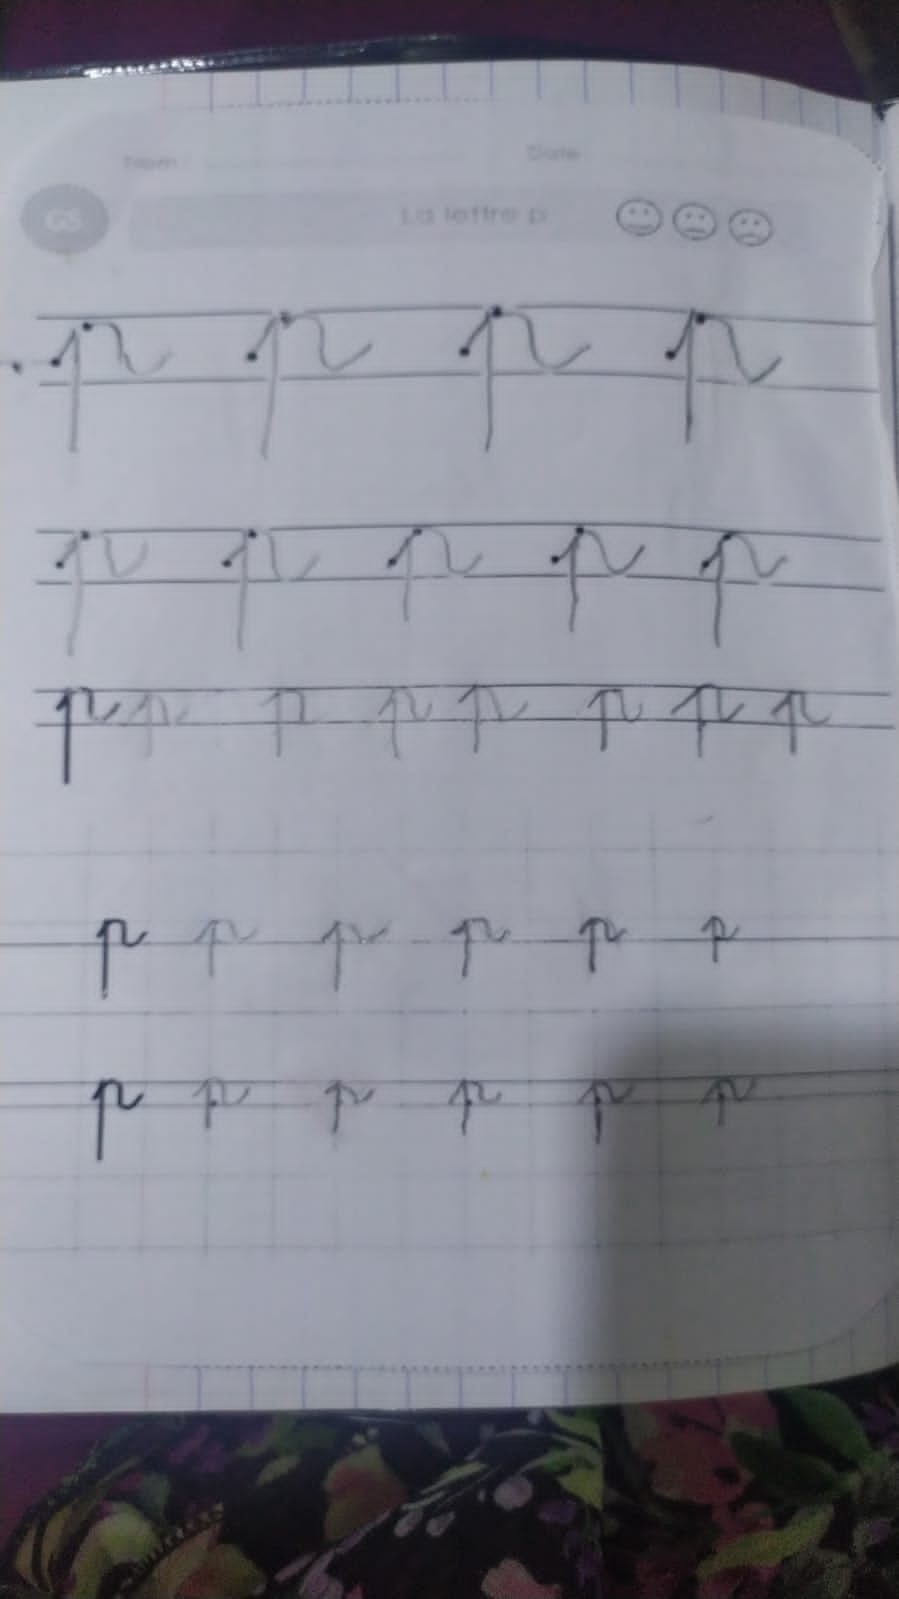 Nom : Date :
GS La lettre p
p p p p
p p p p p
p p p p p p p p
p p p p p p
p p p p p p